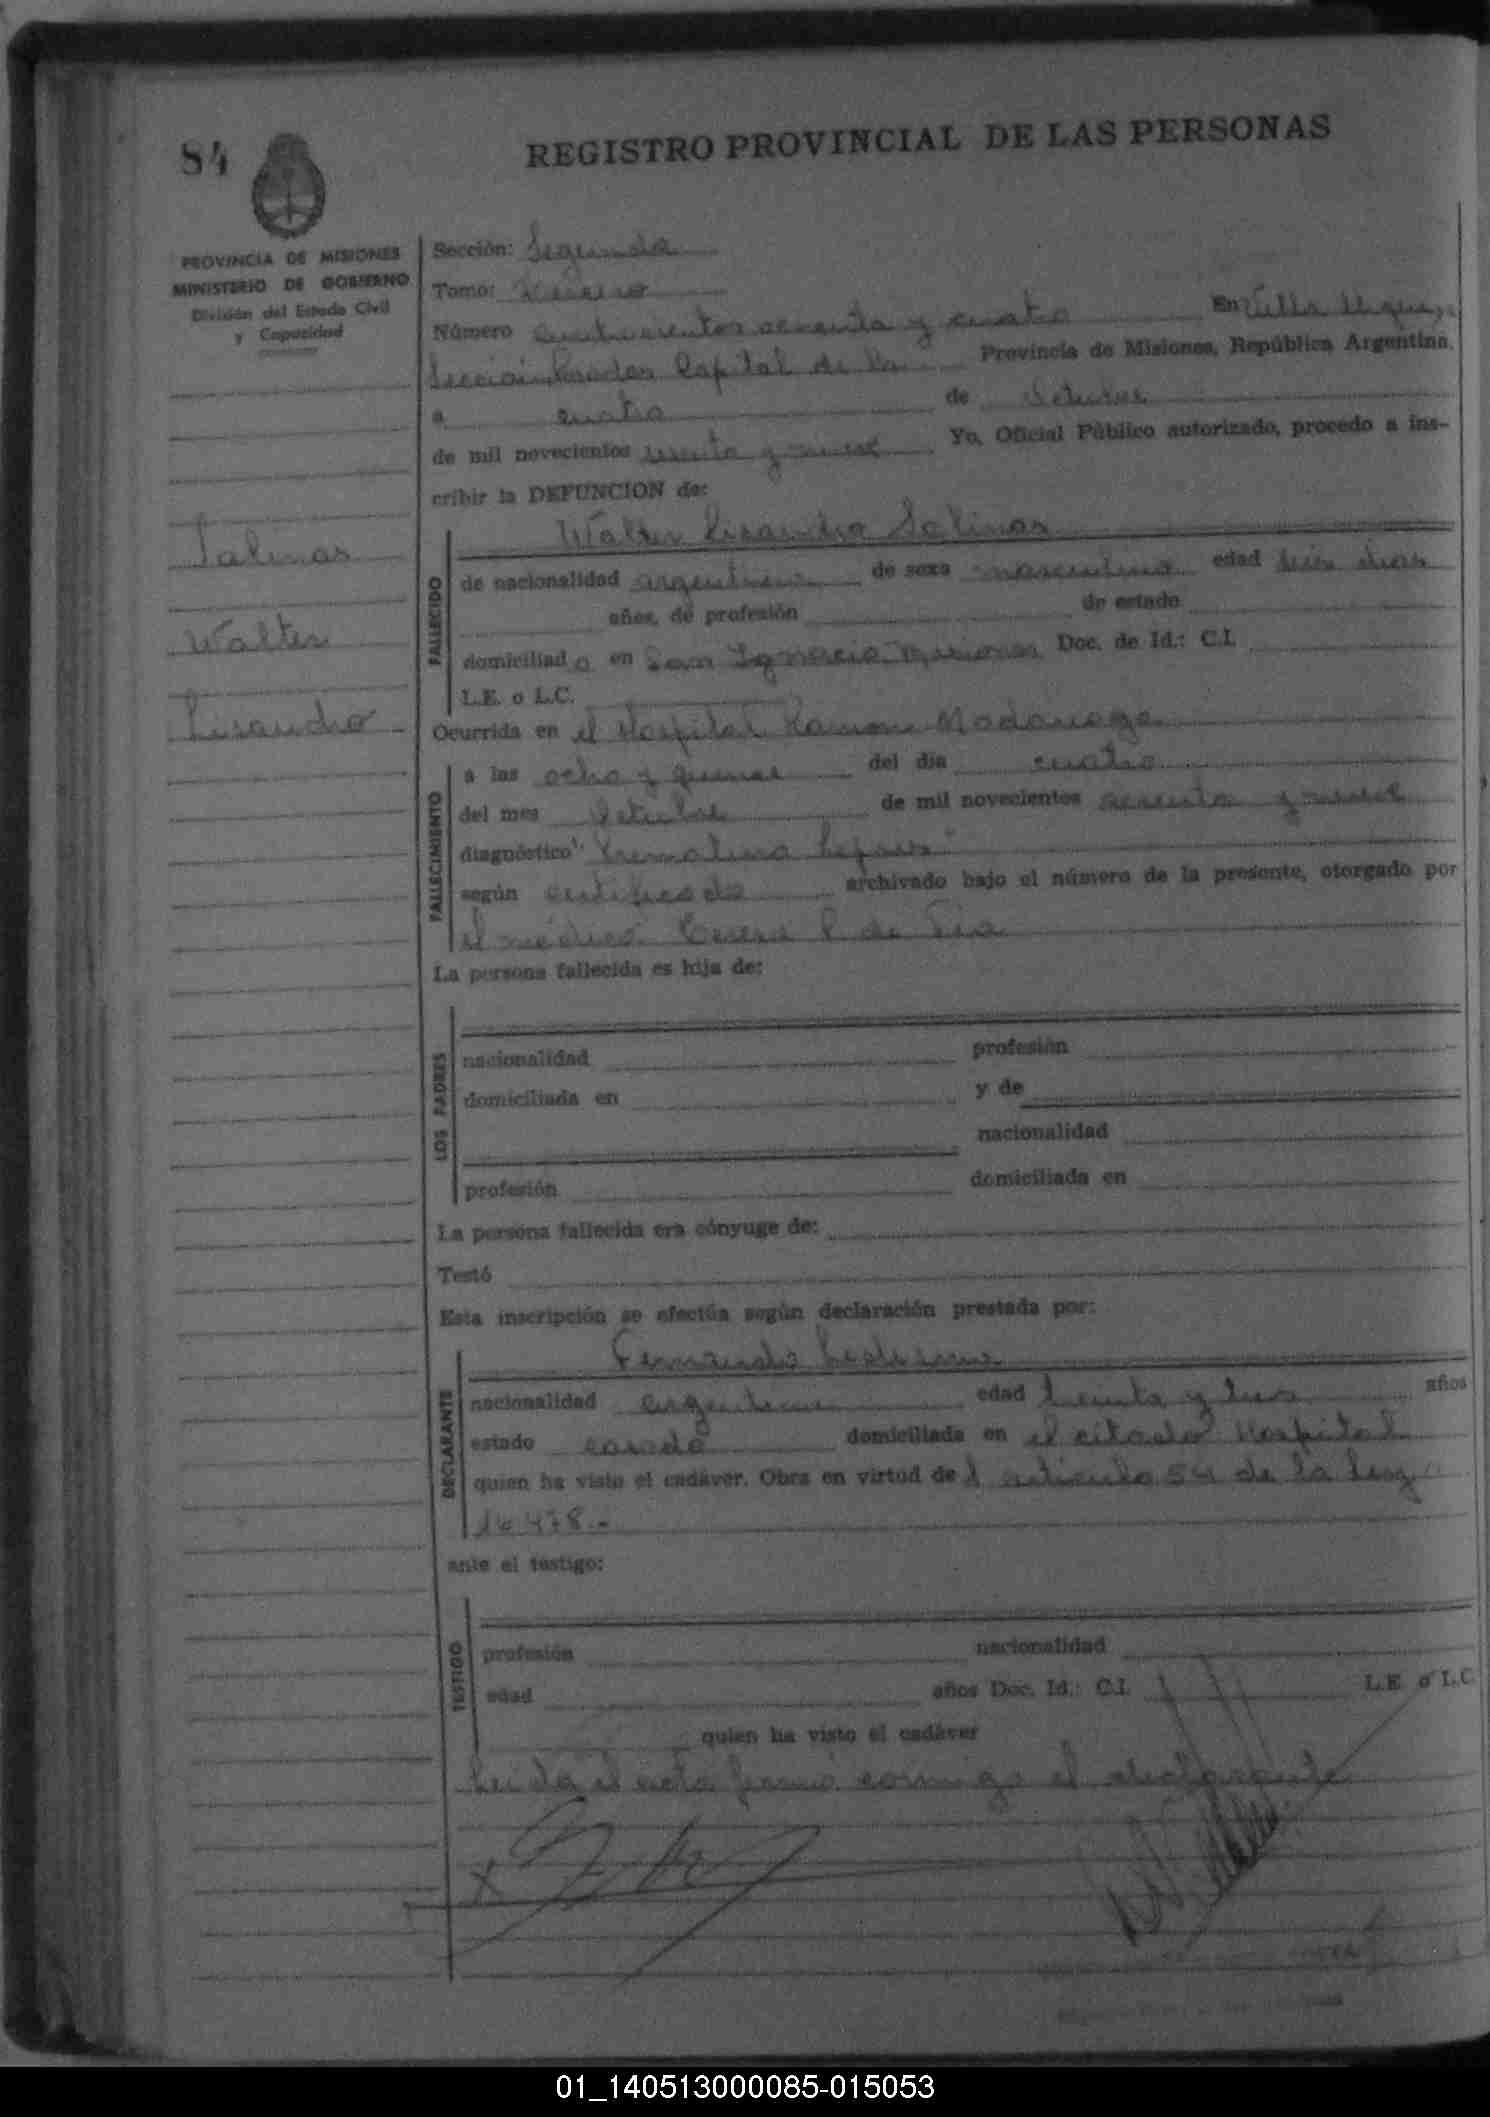 84
REGISTRO PROVINCIAL DE LAS PERSONAS
PROVINCIA DE MISIONES
MINISTERIO DE GOBIERNO
División del Estado Civil
y Capacidad
Salinas
Walter
Lisandro
Sección: Segunda
Tomo:
Número cuatrocientos ochenta y cuatro En Villa Urquiza
Sección Posadas Capital de la Provincia de Misiones, República Argentina,
a cuatro de Octubre
de mil novecientos sesenta y nueve Yo, Oficial Público autorizado, procedo a ins-
cribir la DEFUNCION de:
FALLECIDO
Walter Lisandro Salinas
de nacionalidad argentina de sexo masculino edad dias
años, de profesión de estado
domiciliado en San Ignacio Misiones Doc. de Id.: C.I.
L.E. o L.C.
Ocurrida en el Hospital Ramon Madariaga
FALLECIMIENTO
a las ocho y quince del día cuatro
del mes Octubre de mil novecientos sesenta y nueve
diagnóstico
según certificado archivado bajo el número de la presente, otorgado por
el médico
La persona fallecida es hija de:
LOS PADRES
nacionalidad profesión
domiciliada en y de
nacionalidad
profesión domiciliada en
La persona fallecida era cónyuge de:
Testó
Esta inscripción se efectúa según declaración prestada por:
DECLARANTE
Fernando Ledesma
nacionalidad argentino edad treinta y tres años
estado casado domiciliada en el citado Hospital
quien ha visto el cadáver. Obra en virtud del articulo 54 de la Ley
14478.-
ante el testigo:
TESTIGO
profesión nacionalidad
edad años Doc. Id.: C.I. L.E. o L.C.
quien ha visto el cadáver
Leida el acta firmó conmigo el declarante
X
01_140513000085-015053